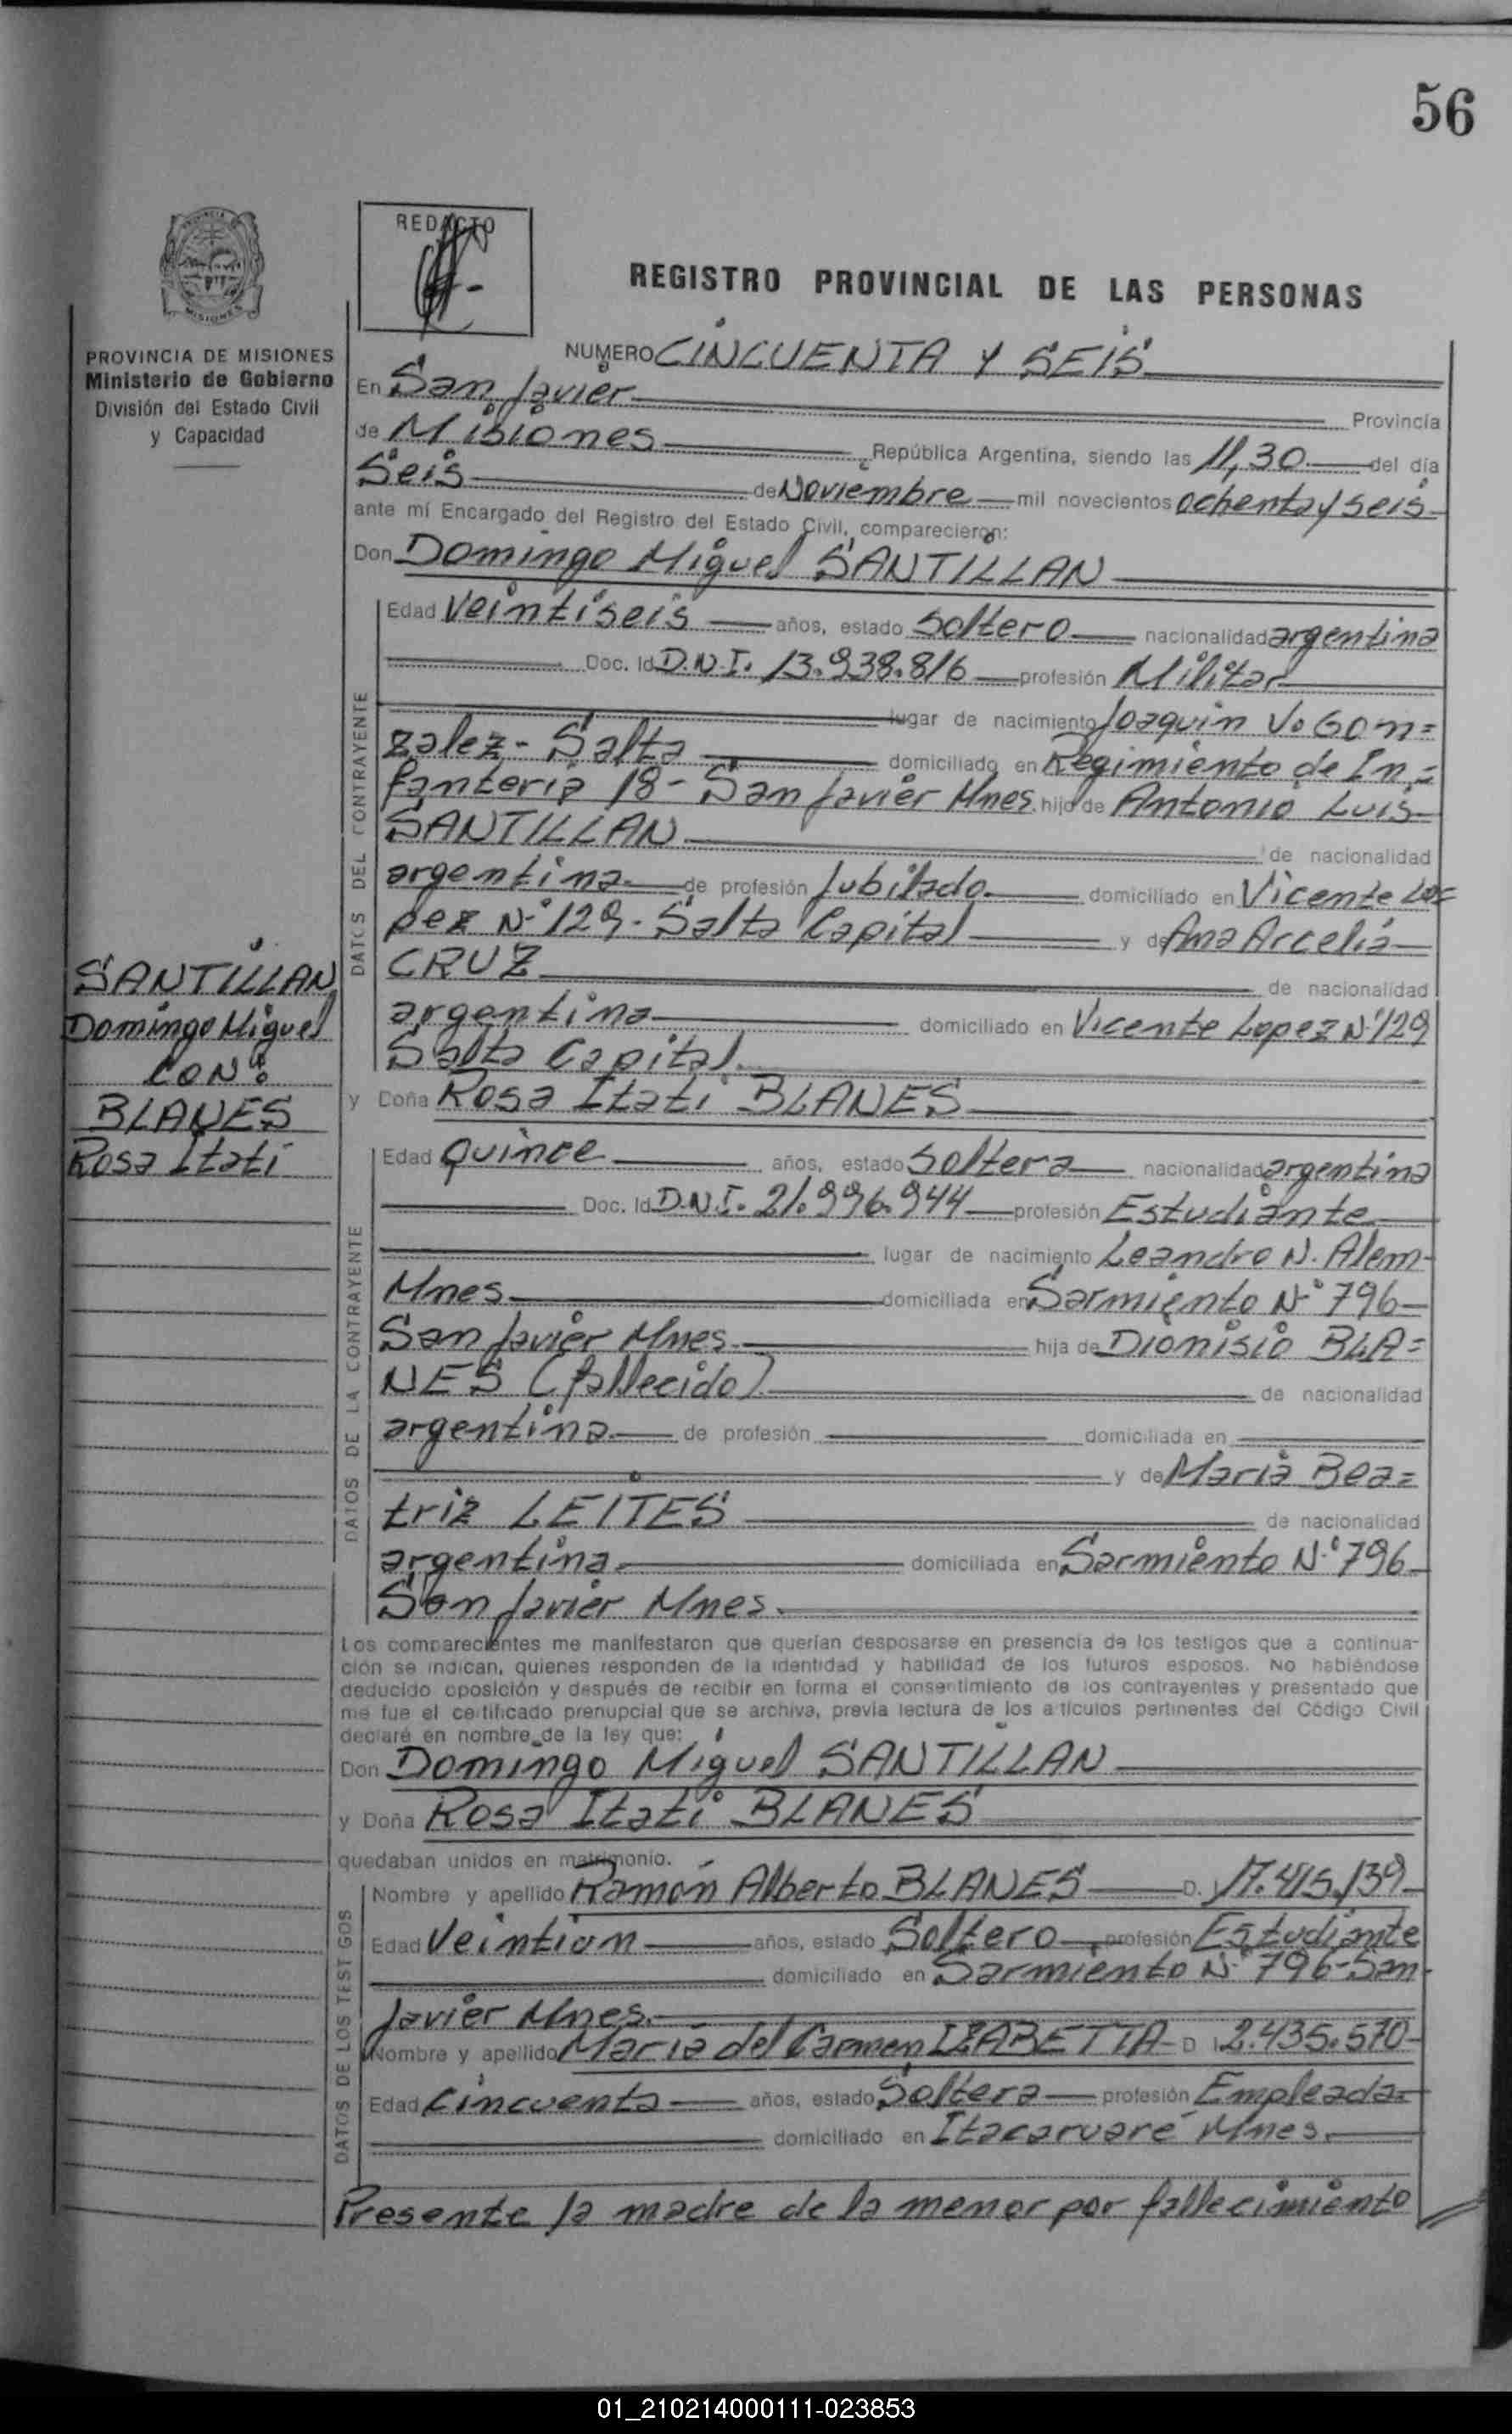 56
REDACTO
REGISTRO PROVINCIAL DE LAS PERSONAS
MISIONES
PROVINCIA DE MISIONES
Ministerio de Gobierno
División del Estado Civil
y Capacidad
NUMERO CINCUENTA Y SEIS
En San Javier Provincia
de Misiones República Argentina, siendo las 11,30 del día
Seis de Noviembre mil novecientos ochenta y seis
ante mí Encargado del Registro del Estado Civil, comparecieron:
Don Domingo Miguel SANTILLAN
DATOS DEL CONTRAYENTE
Edad Veintiseis años, estado Soltero nacionalidad argentina
Doc. Id D.N.I. 13.938.816 profesión Militar
lugar de nacimiento Joaquin V. Gon=
zalez - Salta domiciliado en Regimiento de In=
fanteria 18 - San Javier Mnes. hijo de Antonio Luis
SANTILLAN de nacionalidad
argentina de profesión Jubilado domiciliado en Vicente Lo=
pez N° 129 - Salta Capital y de Ana Arcelia
CRUZ de nacionalidad
argentina domiciliado en Vicente Lopez N° 129
Salta Capital.
SANTILLAN
Domingo Miguel
CON:
BLANES
Rosa Itati
y Doña Rosa Itati BLANES
DATOS DE LA CONTRAYENTE
Edad Quince años, estado Soltera nacionalidad argentina
Doc. Id D.N.I. 21.996.944 profesión Estudiante
lugar de nacimiento Leandro N. Alem-
Mnes. domiciliada en Sarmiento N° 796
San Javier Mnes. hija de Dionisio BLA=
NES (fallecido) de nacionalidad
argentina de profesión domiciliada en
y de Maria Bea=
triz LEITES de nacionalidad
argentina domiciliada en Sarmiento N° 796
San Javier Mnes.
Los comparecientes me manifestaron que querían desposarse en presencia de los testigos que a continua-
ción se indican, quienes responden de la identidad y habilidad de los futuros esposos. No habiéndose
deducido oposición y después de recibir en forma el consentimiento de los contrayentes y presentado que
me fue el certificado prenupcial que se archiva, previa lectura de los artículos pertinentes del Código Civil
declaré en nombre de la ley que:
Don Domingo Miguel SANTILLAN
y Doña Rosa Itati BLANES
quedaban unidos en matrimonio.
DATOS DE LOS TESTIGOS
Nombre y apellido Ramón Alberto BLANES D. I. 17.415.139
Edad Veintiun años, estado Soltero profesión Estudiante
domiciliado en Sarmiento N° 796 - San
Javier Mnes.
Nombre y apellido Maria del Carmen IZABETTA D I 2.435.570
Edad Cincuenta años, estado Soltera profesión Empleada
domiciliado en Itacaruaré Mnes.
Presente la madre de la menor por fallecimiento
01_210214000111-023853